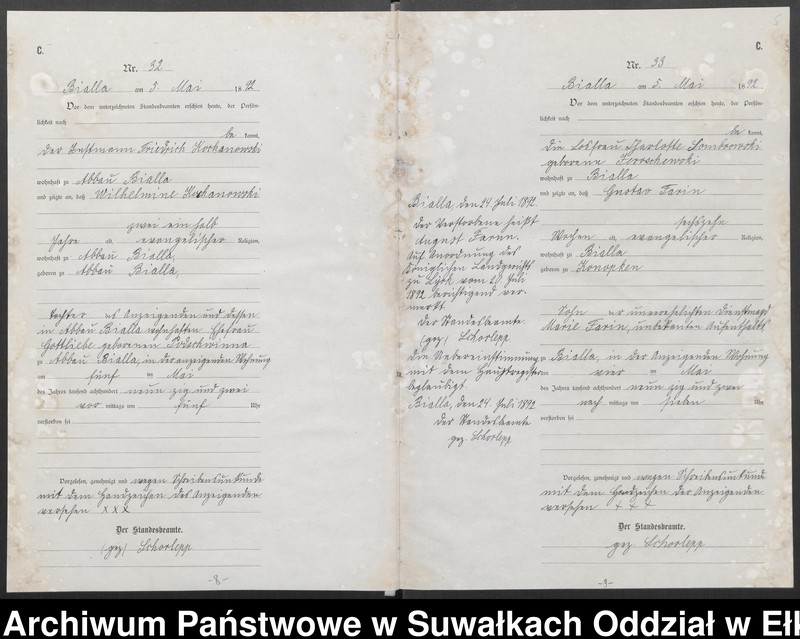 C.
Nr. 32
Bialla am 5. Mai 1892
Vor dem unterzeichneten Standesbeamten erschien heute, der Persön-
lichkeit nach
be kannt,
der Instmann Friedrich Kochanowski
wohnhaft zu Abbau Bialla
und zeigte an, daß Wilhelmine Kochanowski
zwei ein halb
Jahre alt, evangelischer Religion,
wohnhaft zu Abbau Bialla,
geboren zu Abbau Bialla,
Tochter des Anzeigenden und dessen
in Abbau Bialla wohnhaften Ehefrau
Gottliebe geborenen
zu Abbau Bialla, in der anzeigenden Wohnung
am fünf ten Mai
des Jahres tausend achthundert neun zig und zwei
vor mittags um fünf Uhr
verstorben sei
Vorgelesen, genehmigt und wegen Schreibensunkunde
mit dem Handzeichen des Anzeigenden
versehen XXX
Der Standesbeamte.
(gez) Schorlepp
-8-
Bialla, den 24. Juli 1892.
Der Verstorbene heißt
August Farin.
Auf Anordnung des
Königlichen Landgerichts
zu Lyck vom 20 Juli
1892 berichtigend ver-
merkt.
Der Standesbeamte.
(gez) Schorlepp
Die Uebereinstimmung
mit dem Hauptregister
beglaubigt
Bialla, den 24. Juli 1892
Der Standesbeamte
gez. Schorlepp
C.
Nr. 33
Bialla am 5. Mai 1892
Vor dem unterzeichneten Standesbeamten erschien heute, der Persön-
lichkeit nach
be kannt,
die Losfrau Charlotte Dombrowski
geborene
wohnhaft zu Bialla
und zeigte an, daß Gustav Farin
sechszehn
Wochen alt, evangelischer Religion,
wohnhaft zu Bialla
geboren zu Konopken
Sohn der unverehelichten Dienstmagd
Marie Farin, unbekannten Aufenthalts
zu Bialla, in der Anzeigenden Wohnung
am vier ten Mai
des Jahres tausend achthundert neun zig und zwei
nach mittags um sieben Uhr
verstorben sei
Vorgelesen, genehmigt und wegen Schreibensunkunde
mit dem Handzeichen der Anzeigenden
versehen + + +
Der Standesbeamte.
gez Schorlepp
-9-
Archiwum Państwowe w Suwałkach Oddział w Eł